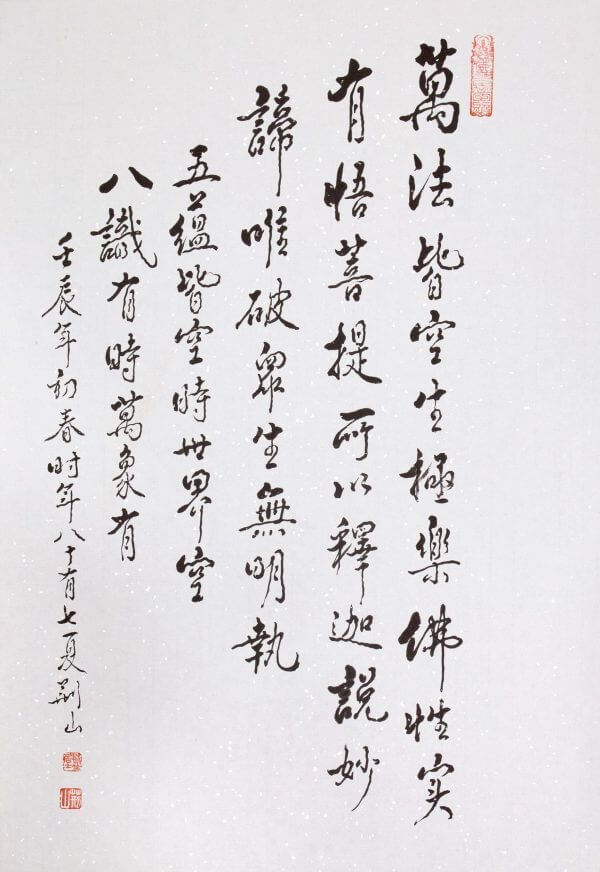 萬法皆空生極樂佛性实
有悟菩提所以釋迦説妙
諦唯破眾生無明執
五蕴皆空時世界空
八識有時萬象有
壬辰年初春时年八十有七夏荆山